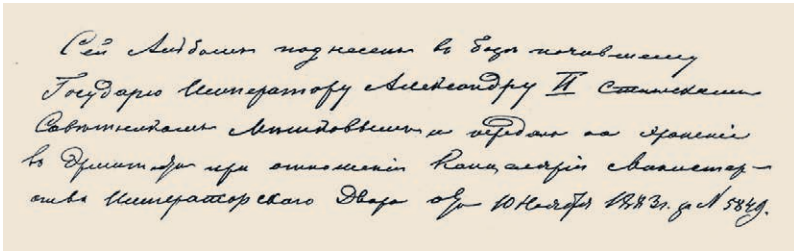 Сей Альбомъ поднесенъ въ Бозѣ почившему
Государю Императору Александру II Статскимъ
Совѣтникомъ и передано на храненіе
въ Эрмитажъ при отношеніи Канцеляріи Министер-
ства Императорскаго Двора отъ 10 Ноября 1883 г. за № 5849.